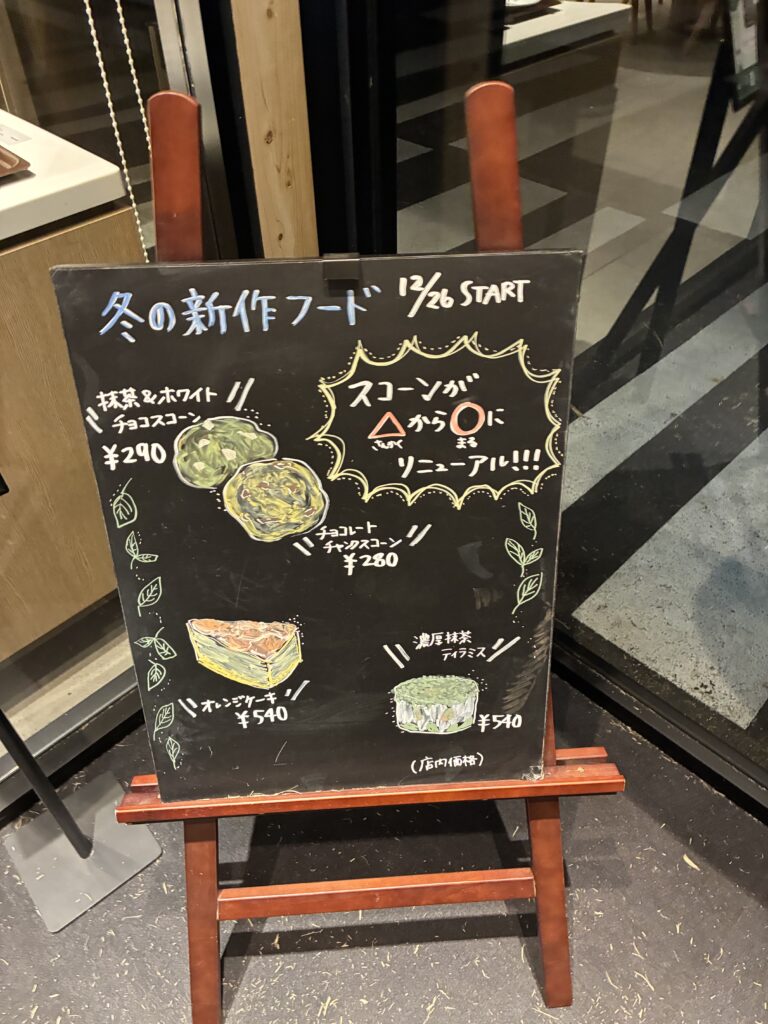 冬の新作フード 12/26 START
抹茶&ホワイト
チョコスコーン
¥290
スコーンが
△から○に
さんかく まる
リニューアル!!!
チョコレート
チャンクスコーン
¥280
オレンジケーキ
¥540
濃厚抹茶
ティラミス
¥540
(店内価格)